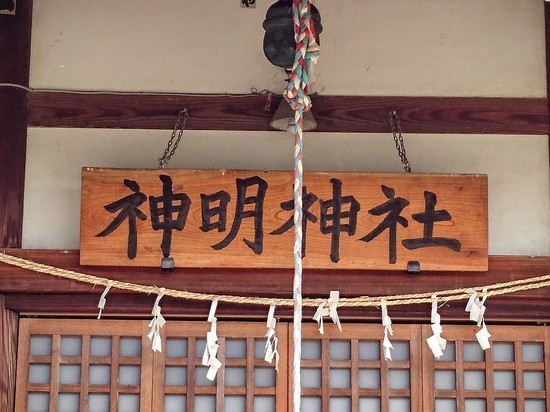 神明神社